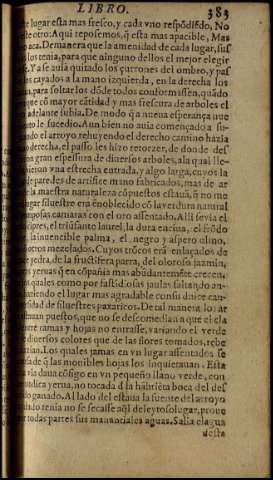 LIBRO. 383
lugar esta mas fresco, y cada vno respõdiẽdo, No
este otro: Aqui reposemos, q̃ esta mas apacible, Mas
aca. Demanera que la amenidad de cada lugar, sus
los tenia, para que ninguno dellos el mejor elegir
Ya se auia quitado los çurrones del ombro, y pas
cayados a la mano izquierda, en la derecha los
para soltar los dõde todos conformassen, quãdo
que cõ mayor cãtidad y mas frescura de arboles el
adelante subia. De modo q̃a nueua esperança nue
le sucedio. Aun bien no auia començado a su
el arroyo, rehuyendo el derecho camino hàzia
derecho, el passo les hizo retorzer, de donde des
gran espessura de diuersos arboles, ala qual lle
vna estrecha entrada, y algo larga, cuyos la
de paredes de artifice mano fabricados, mas de ar
la maestra naturaleza cõpuestos estauã, q̃ no me
lugar siluestre era ẽnoblecido cõ la verdura natural
pomposas camaras con el oro assentado. Alli se via el
cipres, el triũfante laurel, la dura enzina, el frũdo
la inuencible palma, el negro y aspero olmo,
otros mezelados. Cuyos trõcos erã enlaçados de
yedra, de la fructifera parra, del oloroso jazmin,
yeruas q̃ en cõpañia mas abũdantemẽte crecen,
quales como por fastidosas jaulas saltando an
el lugar mas agradable con su dulce can
de siluestres paxaricos. De tal manera los ar
estauan puestos, que no se descomedian a que el sla
ramas y hojas no entrasse, variando el verde
diuersos colores que de las flores tomados, rebe
Los quales jamas en vn lugar assentados se
q̃ las mouibles hojas los inquietauan. Esta
via daua cõsigo en vn pequeño llano verde, con
yerua, no tocada d̃ la hãbriẽta boca del des
ganado. Al lado del estaua la fuente del arroyo
tenia no se secasse aq̃l deleytoso lugar, proue
todas partes sus manantiales aguas. Salia el agua
desta